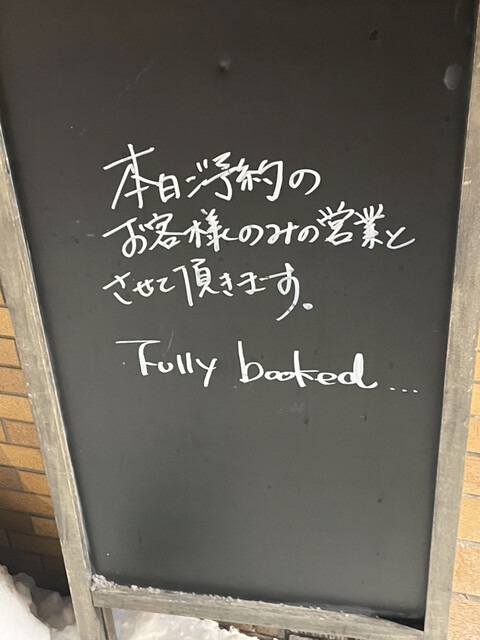 本日ご予約の
お客様のみの営業と
させて頂きます。
Fully booked...